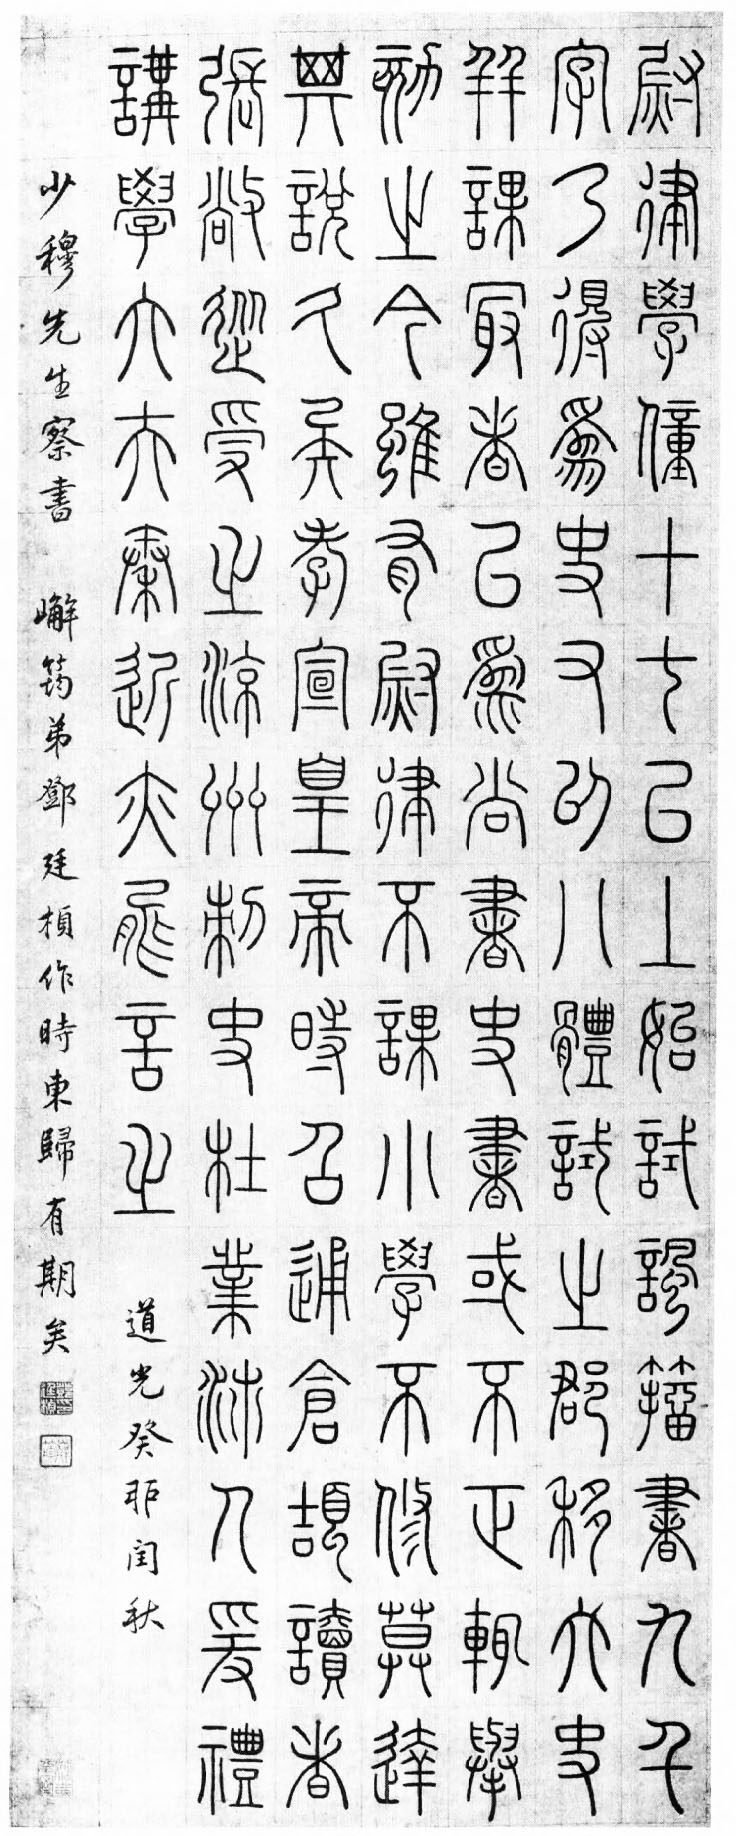 尉律學僮十七已上始試諷籀書九千
字乃得為史又以八體試之郡移大史
并課最者以為尚書史書或不正輒舉
劾之今雖有尉律不課小學不修莫達
其說久矣孝宣皇帝時召通倉頡讀者
張敞從受之涼州刺史杜業沛人爰禮
講學大夫秦近亦能言之 道光癸卯閏秋
少穆先生察書 嶰筠弟鄧廷楨作時東歸有期矣